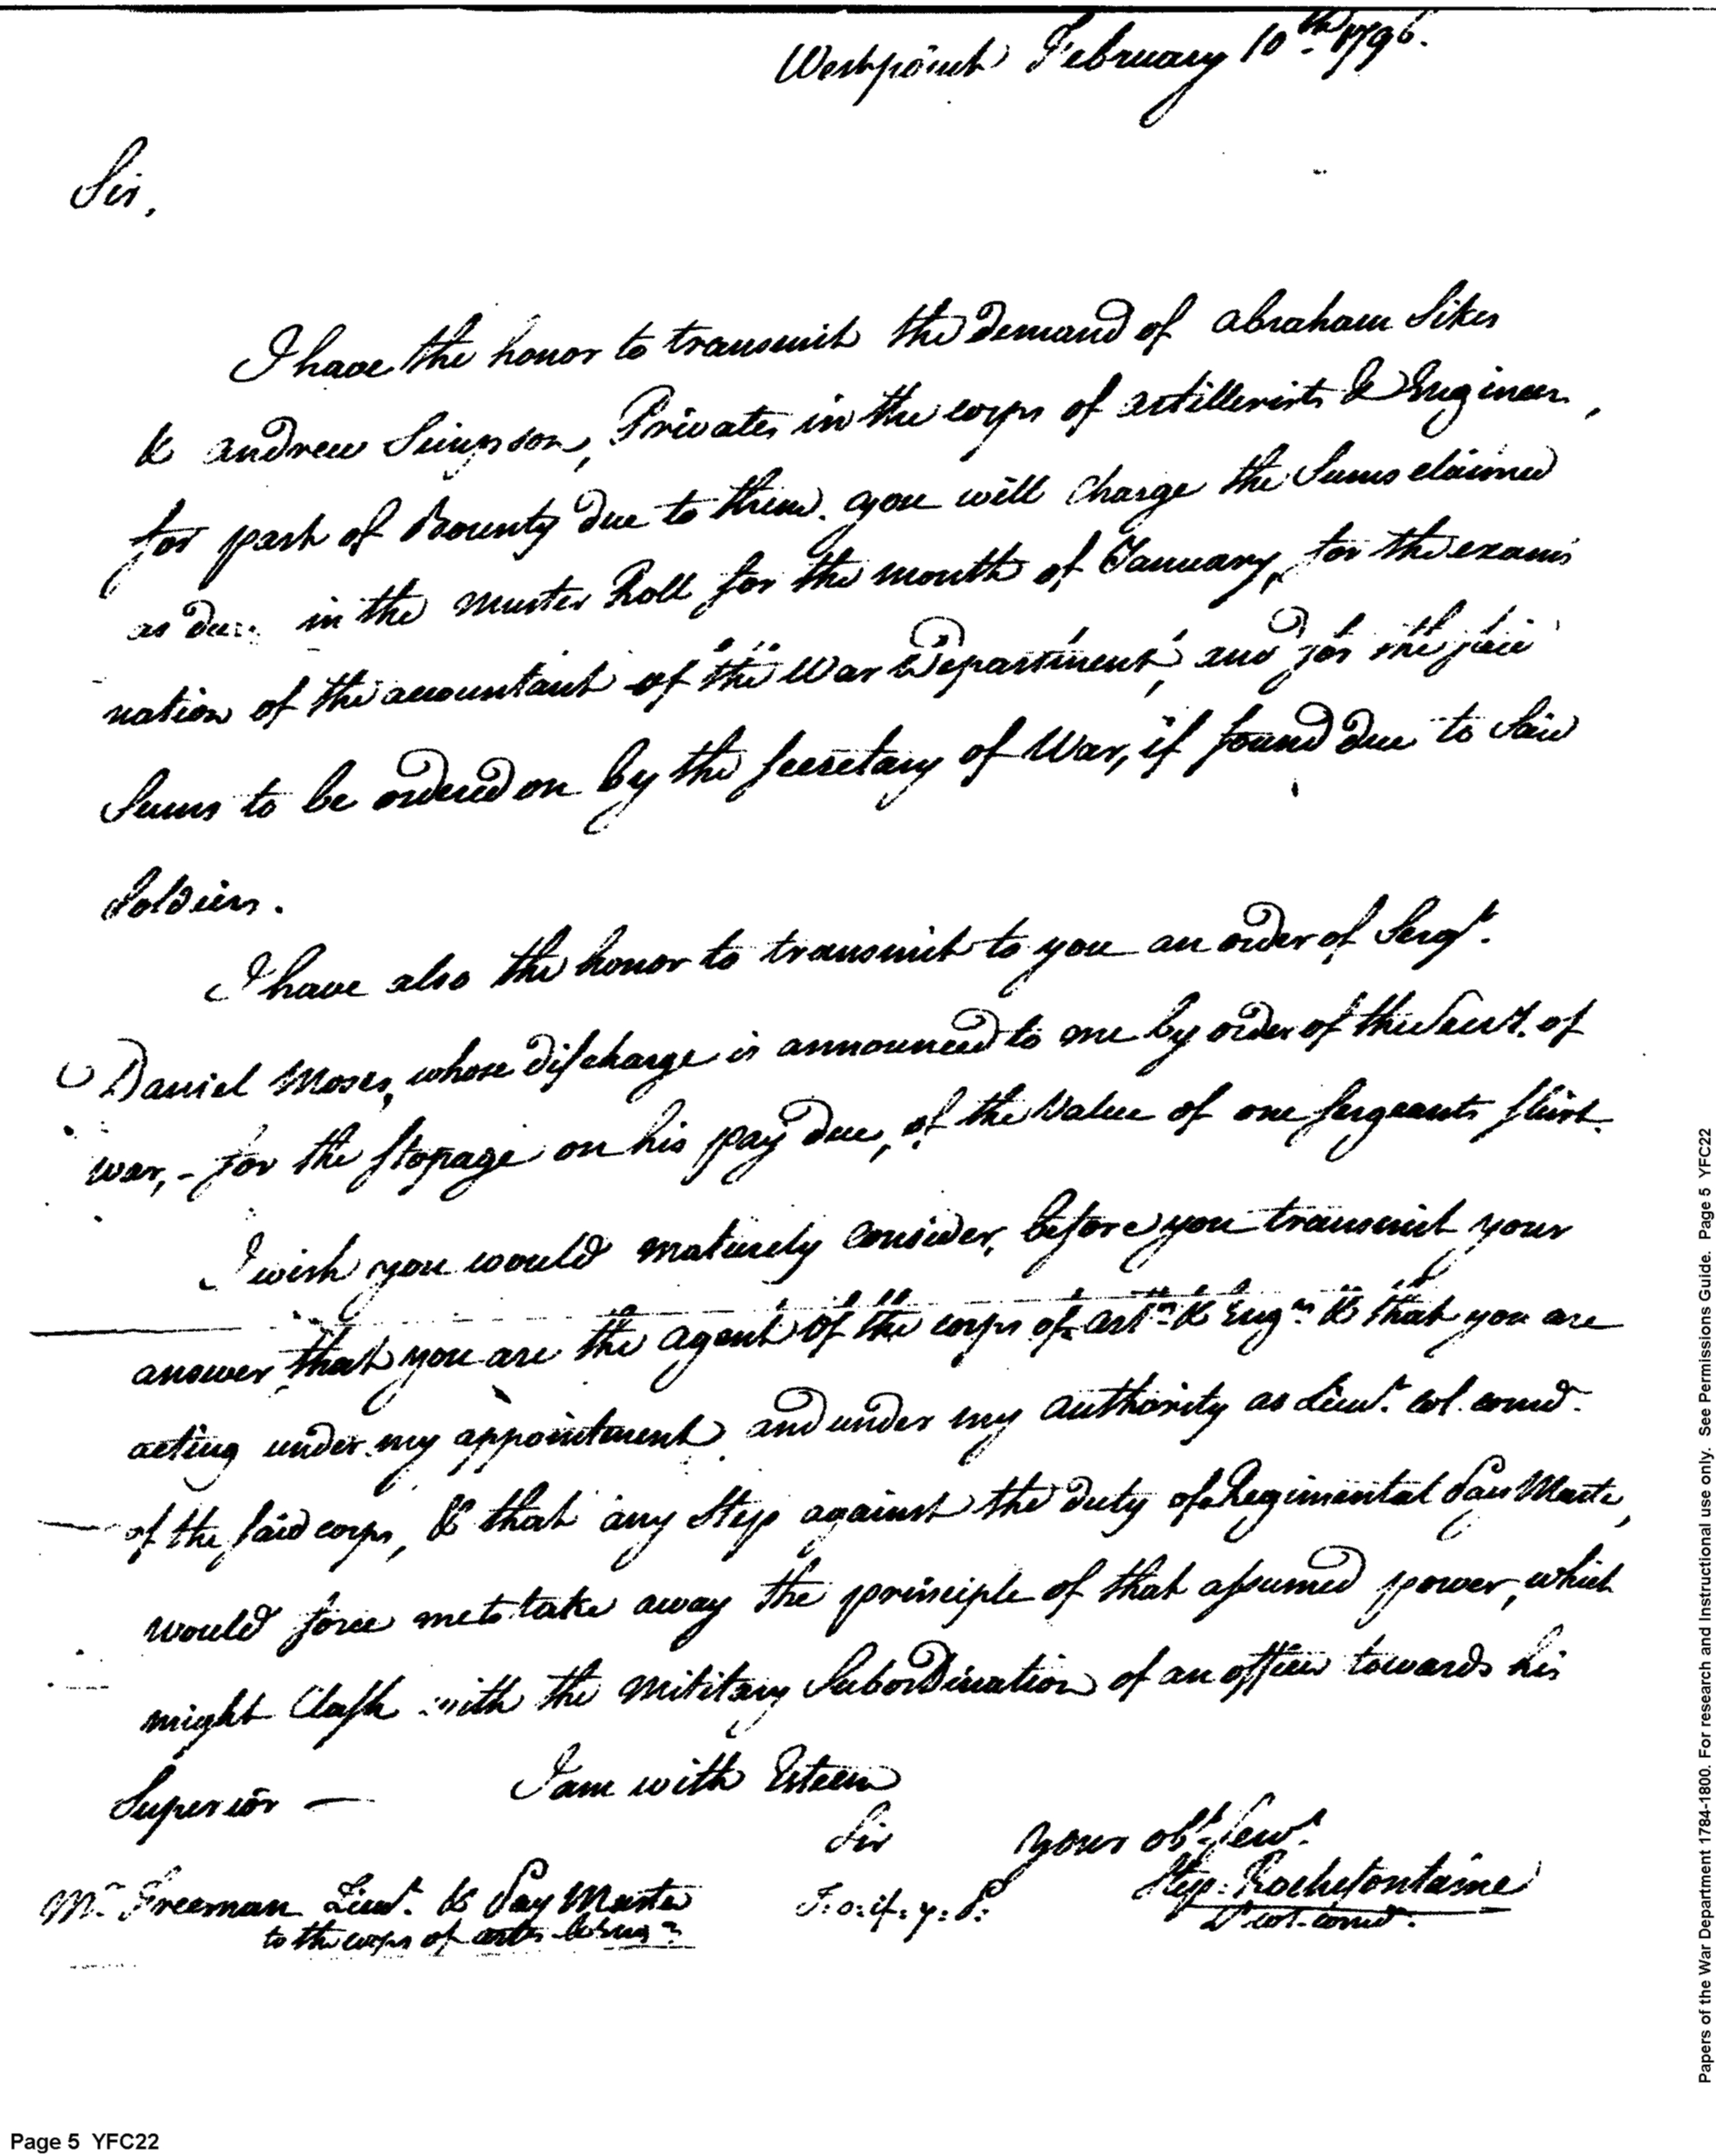 Westpoint February 10th 1796.
Sir,
I have the honor to transmit the demand of abraham Sikes
& andrew Simpson, Privates in the corps of artillerists & Engineers,
for part of Bounty due to them. you will Charge the Sums claimed
as due in the Muster Roll for the month of January, for the exami
nation of the accountant of the War Department, and for the said
Sums to be ordered on by the Secretary of War, if found due to Said
Soldiers.
I have also the honor to transmit to you an order of Sergt.
Daniel Moses, whose discharge is announced to me by order of the Secrt. of
war, - for the stopage on his pay due, of the Value of one sergeants shirt.
I wish you would maturely Consider, before you transmit your
answer, that you are the agent of the corps of artrs & Engrs & that you are
acting under my appointment and under my authority as Lieut. col. comdt.
of the said corps, & that any Step against the duty of Regimental Pay Master,
would force me to take away the principle of that assumed power, which
might Clash with the military Subordination of an officer towards his
Superior —
I am with Esteem
Sir yours obt. servt.
Step: Rochefontaine
Lt col. comdt.
Mr Freeman Lieut. & Pay Master
to the corps of
Page 5 YFC22
Papers of the War Department 1784-1800. For research and Instructional use only. See Permissions Guide. Page 5 YFC22